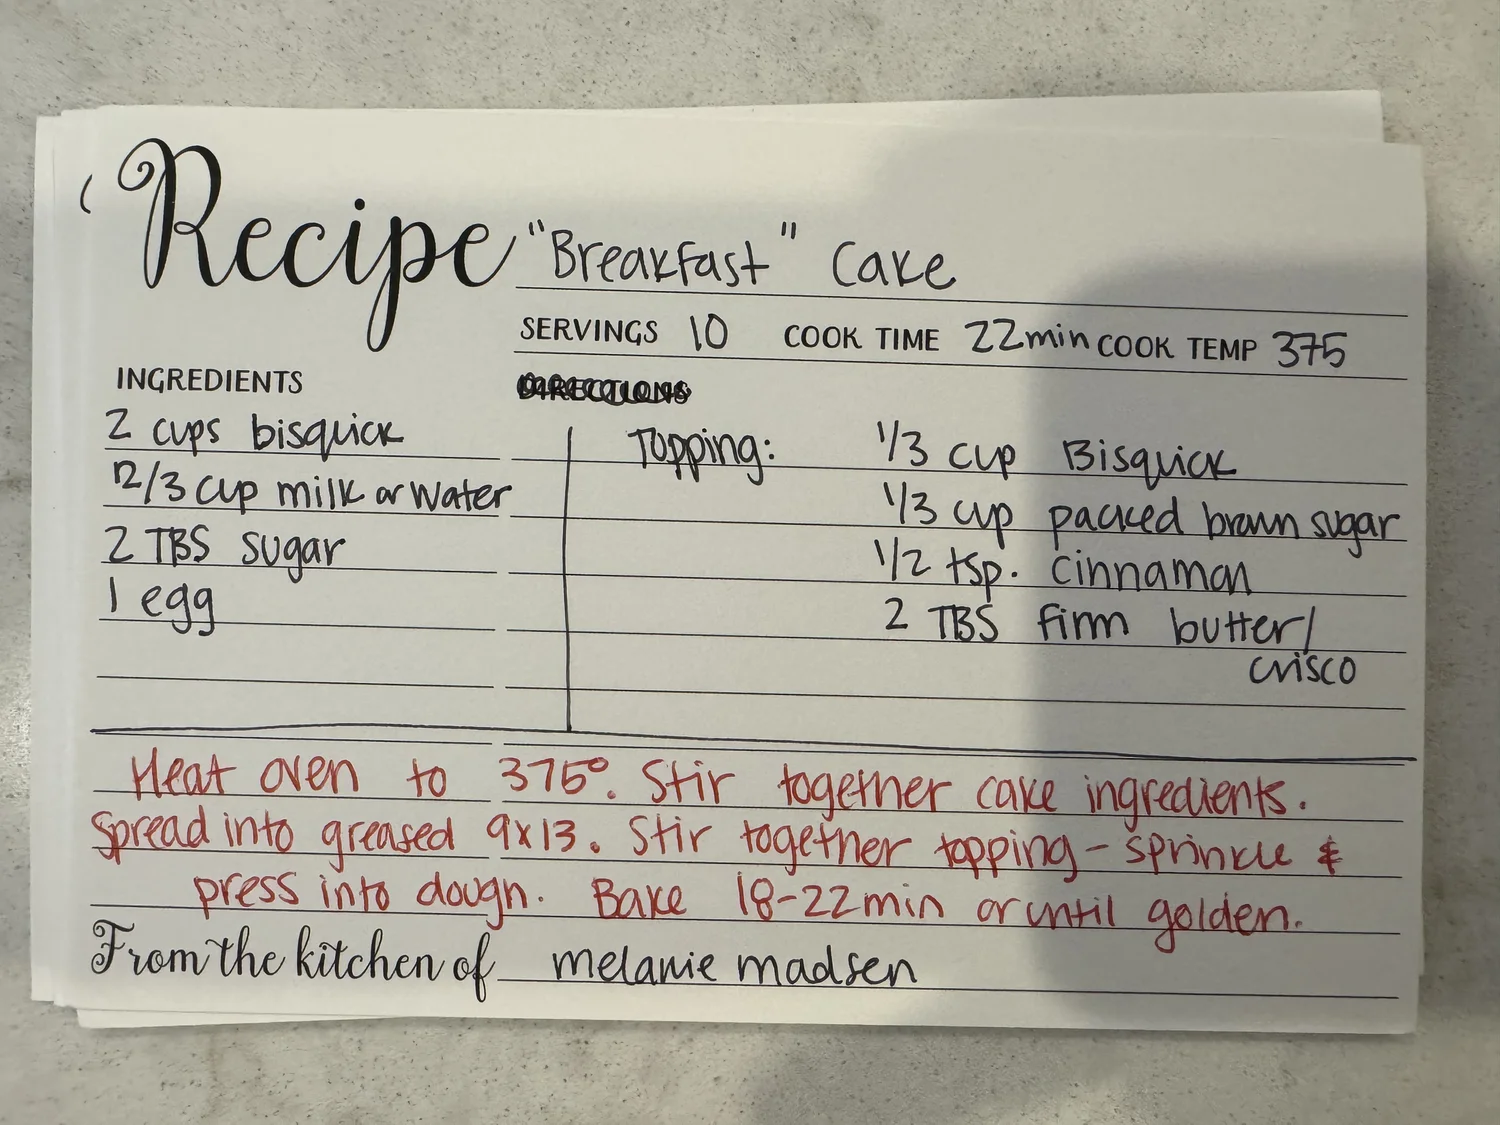 Recipe "Breakfast" Cake
SERVINGS 10 COOK TIME 22min COOK TEMP 375
INGREDIENTS
DIRECTIONS
2 cups bisquick
2/3 cup milk or water
2 TBS sugar
1 egg
Topping: 1/3 cup Bisquick
1/3 cup packed brown sugar
1/2 tsp. cinnamon
2 TBS firm butter/
crisco
Heat oven to 375°. Stir together cake ingredients.
Spread into greased 9x13. Stir together topping - sprinkle &
press into dough. Bake 18-22min or until golden.
From the kitchen of melanie madsen